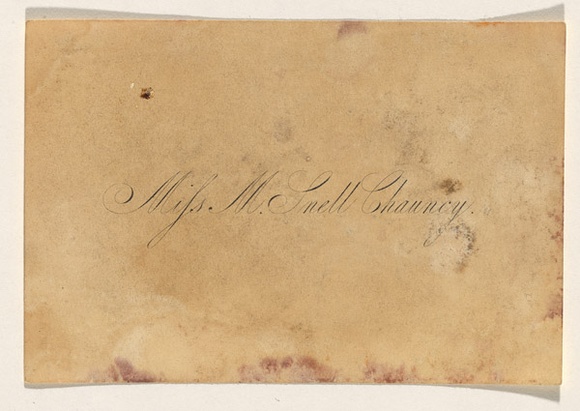 Miſs M. Snell Chauncy.